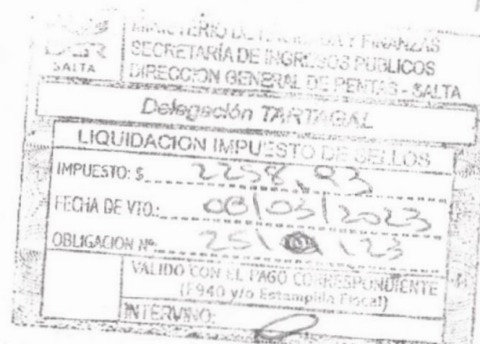 MINISTERIO DE HACIENDA Y FINANZAS
SECRETARÍA DE INGRESOS PUBLICOS
DIRECCION GENERAL DE RENTAS - SALTA
SALTA
Delegación TARTAGAL
LIQUIDACION IMPUESTO DE SELLOS
IMPUESTO: $ 2258,93
FECHA DE VTO.: 08/03/2023
OBLIGACION Nº: 251 123
VALIDO CON EL PAGO CORRESPONDIENTE
(F940 y/o Estampilla Fiscal)
INTERVINO: